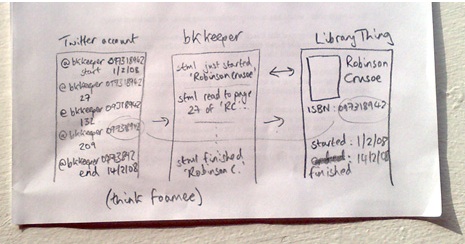 Twitter account
@bkkeeper 097318942
start 1/2/08
@bkkeeper 097318942
27
@bkkeeper 097318942
132
@bkkeeper 097318942
209
@bkkeeper 09773842
end 14/2/08
bkkeeper
stml just started
'Robinson Crusoe'
stml read to page
27 of 'RC...
stml finished
'Robinson C.'
LibraryThing
Robinson
Crusoe
ISBN: 097318942
started: 1/2/08
14/2/08
finished
(think foamee)